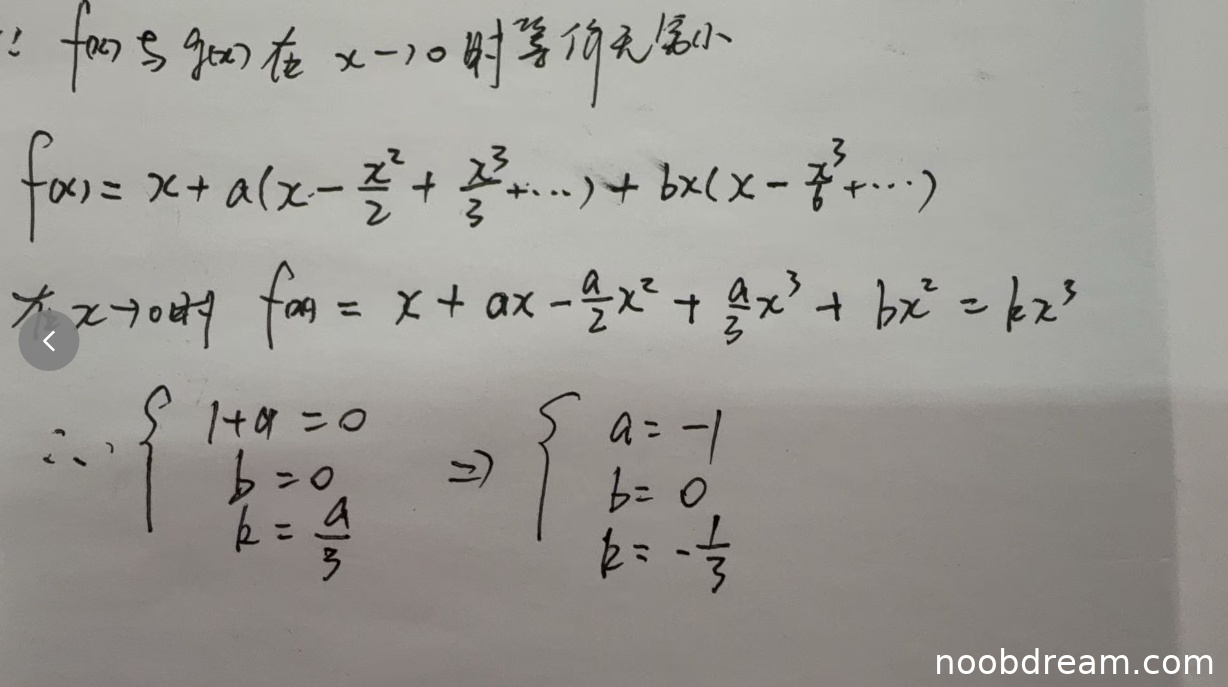 ∵ f(x)与g(x)在 x→0时等价无穷小
f(x) = x + a(x - x²/2 + x³/3 + ⋯) + bx(x - x³/6 + ⋯)
在 x→0时 f(x) = x + ax - a/2 x² + a/3 x³ + bx² = kx³
∴ { 1+a = 0 ⇒ { a = -1
b = 0 b = 0
k = a/3 k = -1/3
noobdream.com